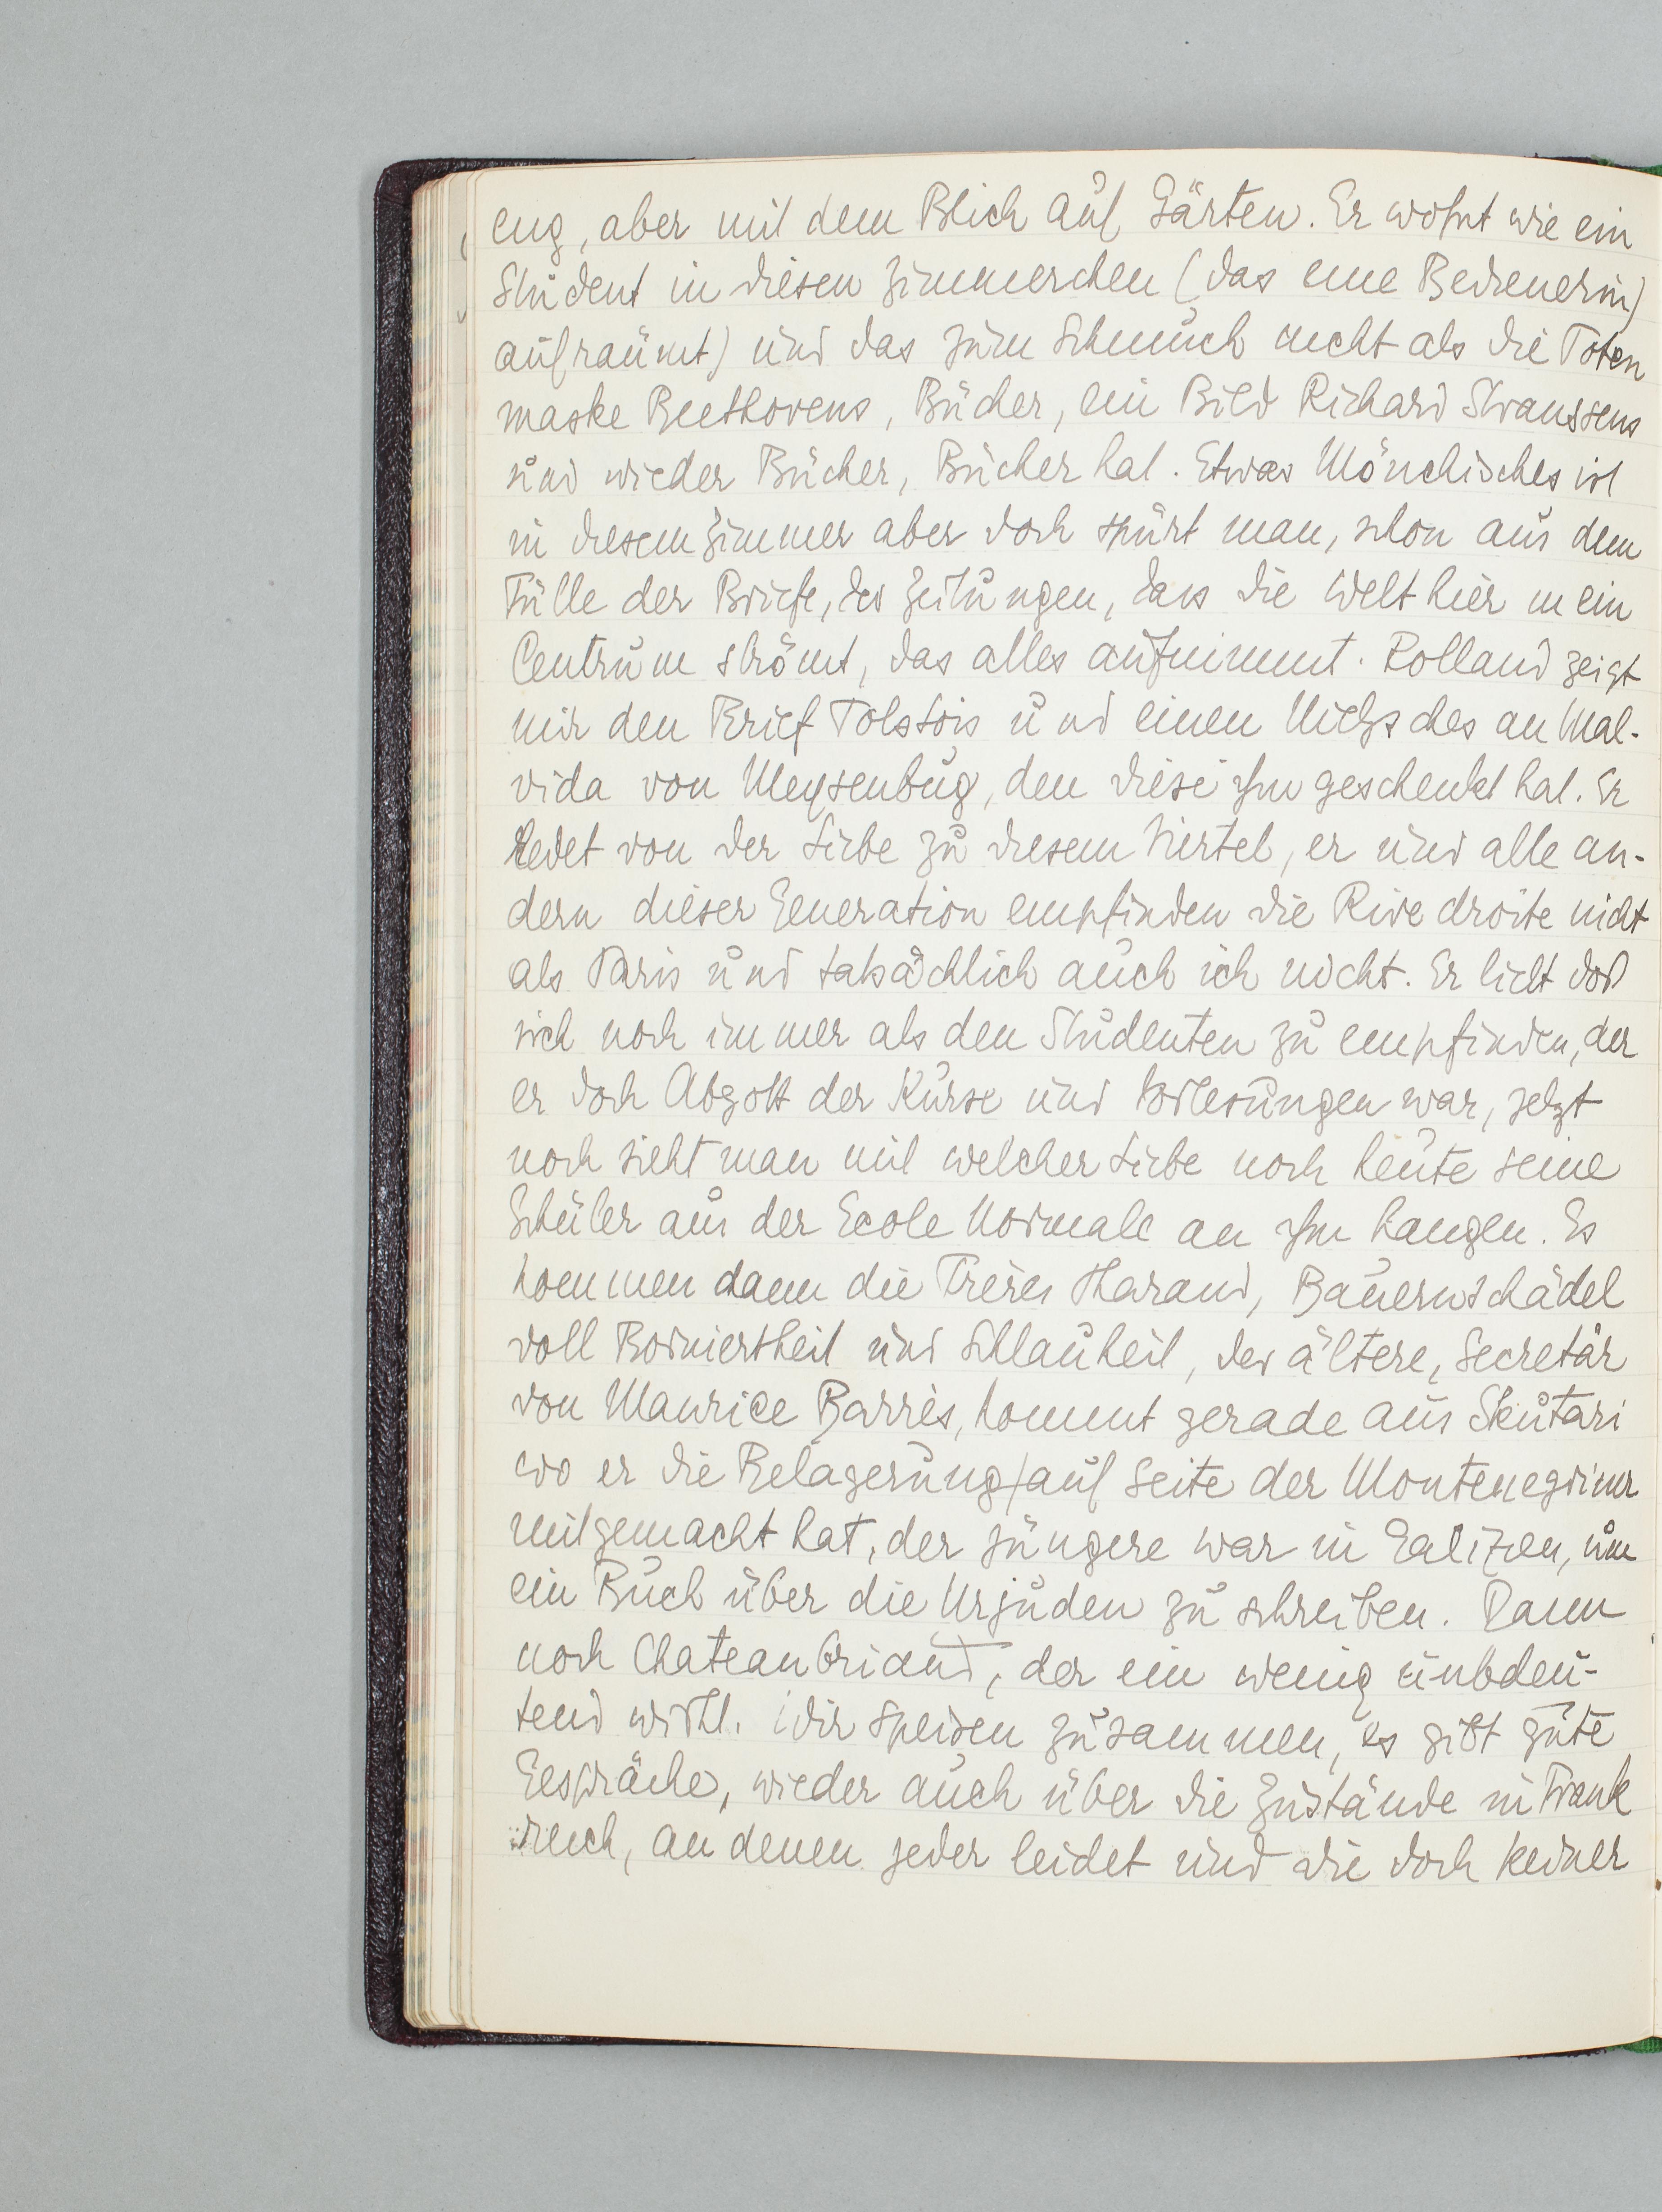 eng, aber mit dem Blick auf Gärten. Er wohnt wie ein
Student in diesen Zimmerchen (das eine Bedienerin)
aufräumt) und das zum Schmuck nicht als die Toten
maske Beethovens, Bücher, ein Bild Richard Straussens
und wieder Bücher, Bücher hat. Etwas Mönchisches ist
in diesem Zimmer aber doch spürt man, schon aus dem
Fülle der Briefe, der Zeitungen, dass die Welt hier in ein
Centrum strömt, das alles aufnimmt. Rolland zeigt
mir den Brief Tolstois und einen Nietzsches an Mal-
vida von Meysenbug, den diese ihm geschenkt hat. Er
redet von der Liebe zu diesem Viertel, er und alle an-
dern dieser Generation empfinden die Rive droite nicht
als Paris und tatsächlich auch ich nicht. Er liebt doch
sich noch immer als den Studenten zu empfinden, der
er doch Abgott der Kurse und Vorlesungen war, jetzt
noch sieht man mit welcher Liebe noch heute seine
Schüler aus der Ecole Normale an ihm hangen. Es
kommen dann die Frères Tharaud, Bauernschädel
voll Borniertheit und Schlauheit, der ältere, Secretär
von Maurice Barrès, kommt gerade aus Skutari
wo er die Belagerung auf Seite der Montenegriner
mitgemacht hat, der jüngere war in Galizien, um
ein Buch über die Urjuden zu schreiben. Dann
noch Chateaubriant, der ein wenig unbedeu-
tend wirkt. Wir speisen zusammen, es gibt gute
Gespräche, wieder auch über die Zustände in Frank
reich, an denen jeder leidet und die doch keiner